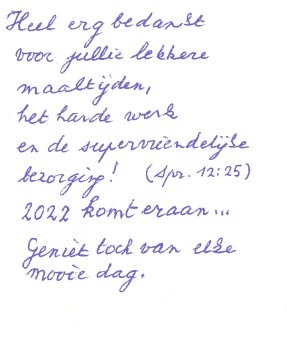 Heel erg bedankt
voor jullie lekkere
maaltijden,
het harde werk
en de supervriendelijke
bezorging! (Spr. 12:25)
2022 komt eraan...
Geniet toch van elke
mooie dag.